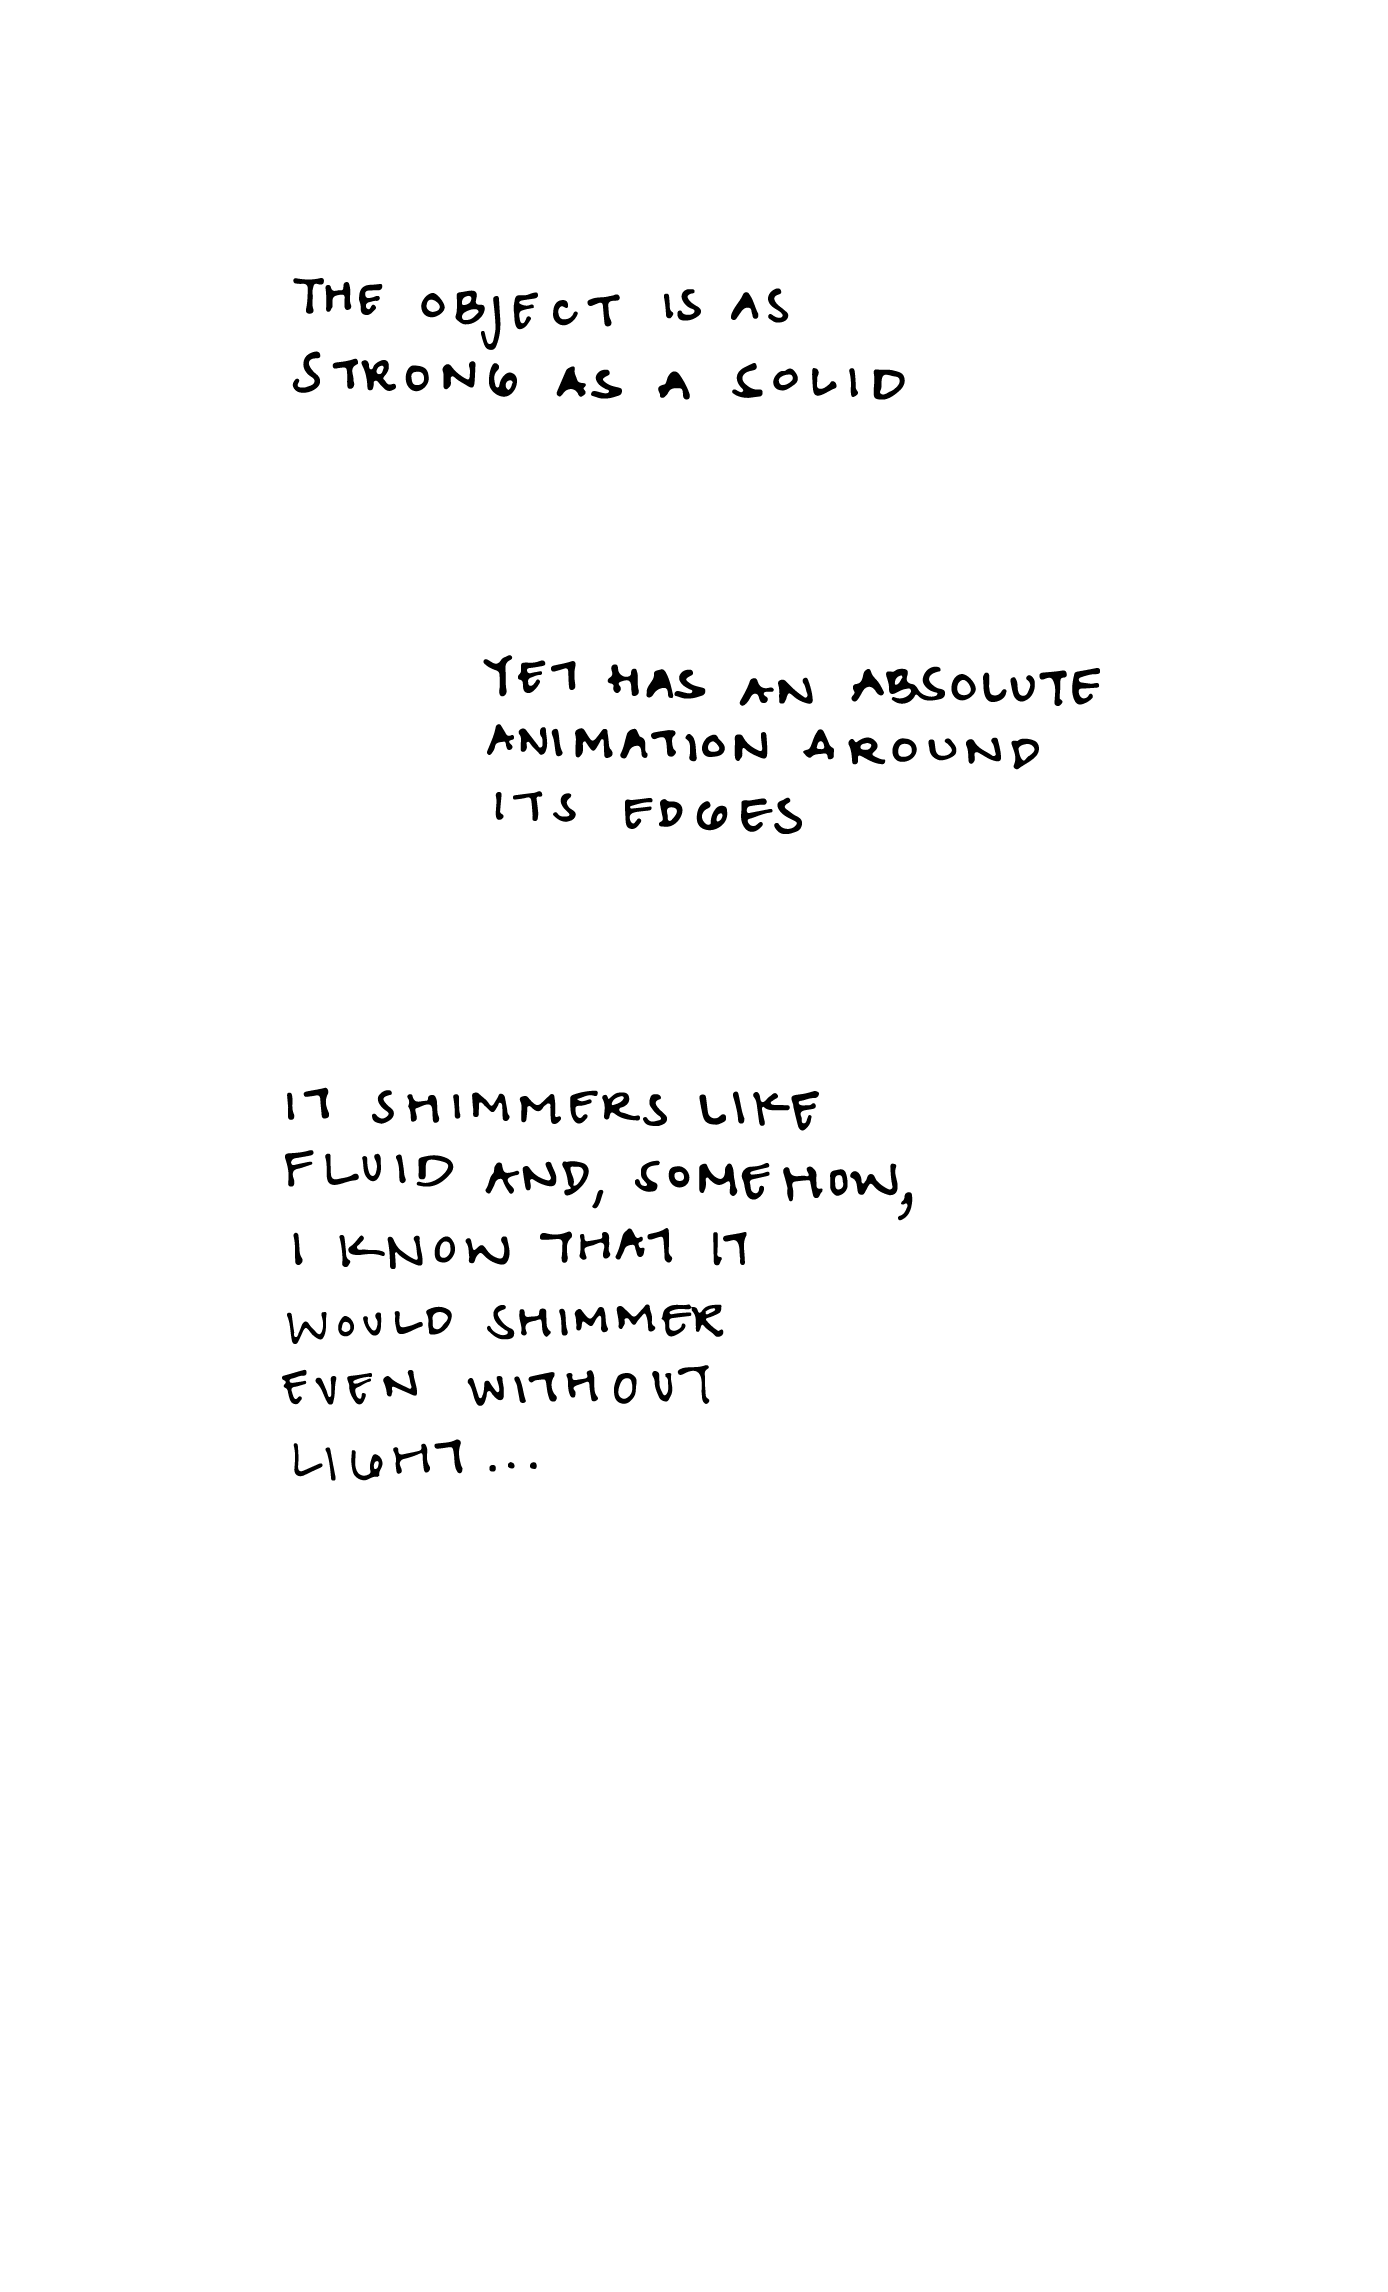 THE OBJECT IS AS
STRONG AS A SOLID
YET HAS AN ABSOLUTE
ANIMATION AROUND
ITS EDGES
IT SHIMMERS LIKE
FLUID AND, SOMEHOW,
I KNOW THAT IT
WOULD SHIMMER
EVEN WITHOUT
LIGHT...